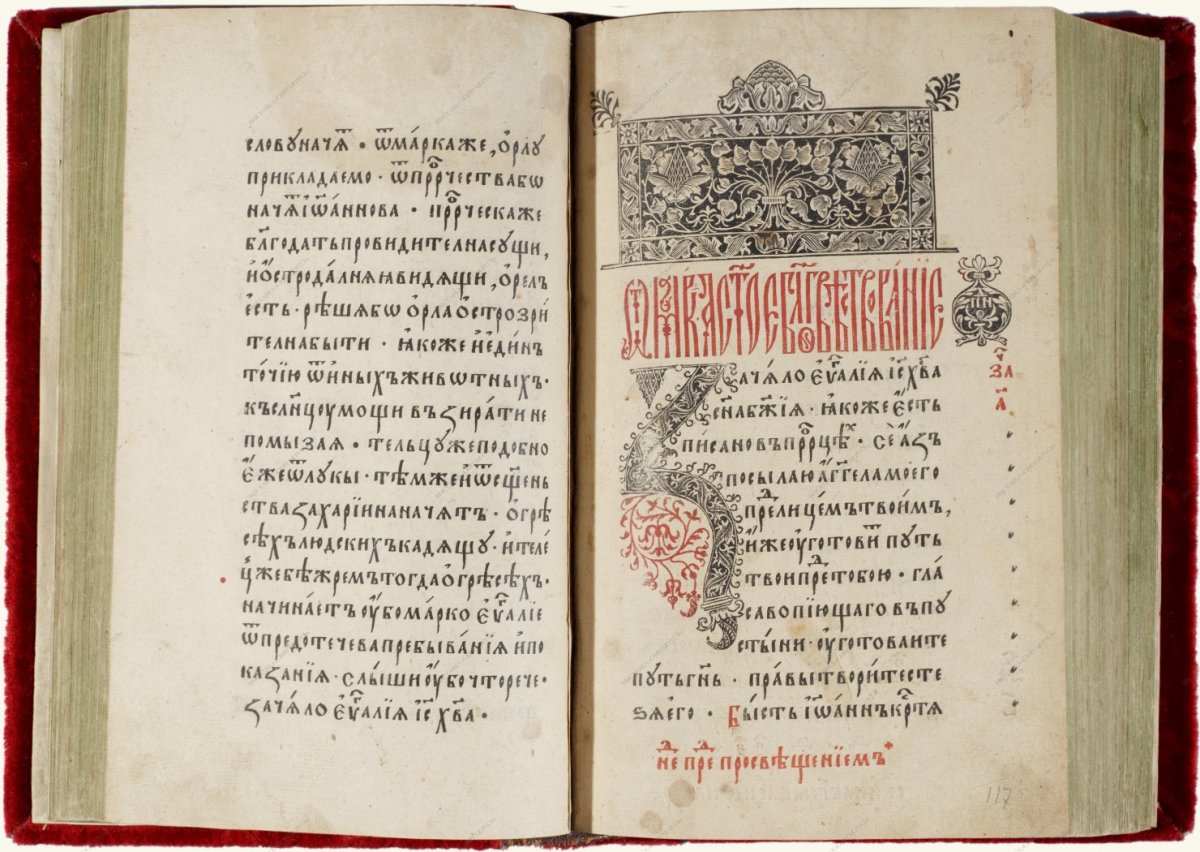 словꙋ начѧ́т . ѿ ма́рка же , ѻ҆рлꙋ
прикладаемо . ѿ прⷪ҇рчества бѡ
начѧ́т і҆ѡ҆а́ннова . прⷪ҇рческа же
блг҃одать провидителна сꙋщи ,
и҆ ѻ҆стро да́лнѧѧ видѧщи , ѻ҆релъ
є҆́сть . рѣшѧ бѡ ѻ҆рла ѻ҆строзри́
телна быти . ꙗ҆коже и҆ є҆ди́нъ
то́чїю ѿ и҆ны́хъ живѡтныхъ .
къ слн҃цꙋ мощи взира́ти не
помызаѧ . тельцꙋ же подобно
є҆́же ѿ лꙋкы . тѣ́мже и҆ ѿ сщ҃ень
ства заха́рїина начѧтъ . ѻ҆ грѣ
сѣ́хъ людскихъ кадѧщꙋ . и҆ теле́
цъ же бѣ жремъ тогда ѻ҆ грѣсѣ́хъ .
начина́етъ ᲂу҆бо ма́рко є҆ѵⷢ҇алїе
ѿ предотечева пребыва́нїѧ и҆ по
каза́нїѧ . слы́ши ᲂу҆бо что рече .
зача́ло є҆ѵⷢ҇алїѧ і҆с҃ хв҃а .
Ѿ ма́рка ст҃ое бл҃говѣствова́нїе
пн҃
Зача́ло є҆ѵⷢ҇алїѧ і҆с҃ хв҃а
за
сн҃а бж҃їѧ . ꙗ҆коже є҆́сть
а҃
писано въ прⷪ҇рцѣхъ . се́ а҆́зъ
посылаю а҆́гг҃ела моего
преⷣ лице́мъ твои́мъ ,
и҆́же ᲂу҆готови́т пꙋть
твои преⷣ тобою . гла́
са вопїю́щаго въ пꙋ
сты́ни . ᲂу҆готоваите
пꙋть гн҃ь . пра́вы твори́те сте
ѕѧ́ е҆го . Бы́сть і҆ѡ҆а́ннъ крⷭ҇тѧ
неⷣ преⷣ просвѣщенїемъ
117